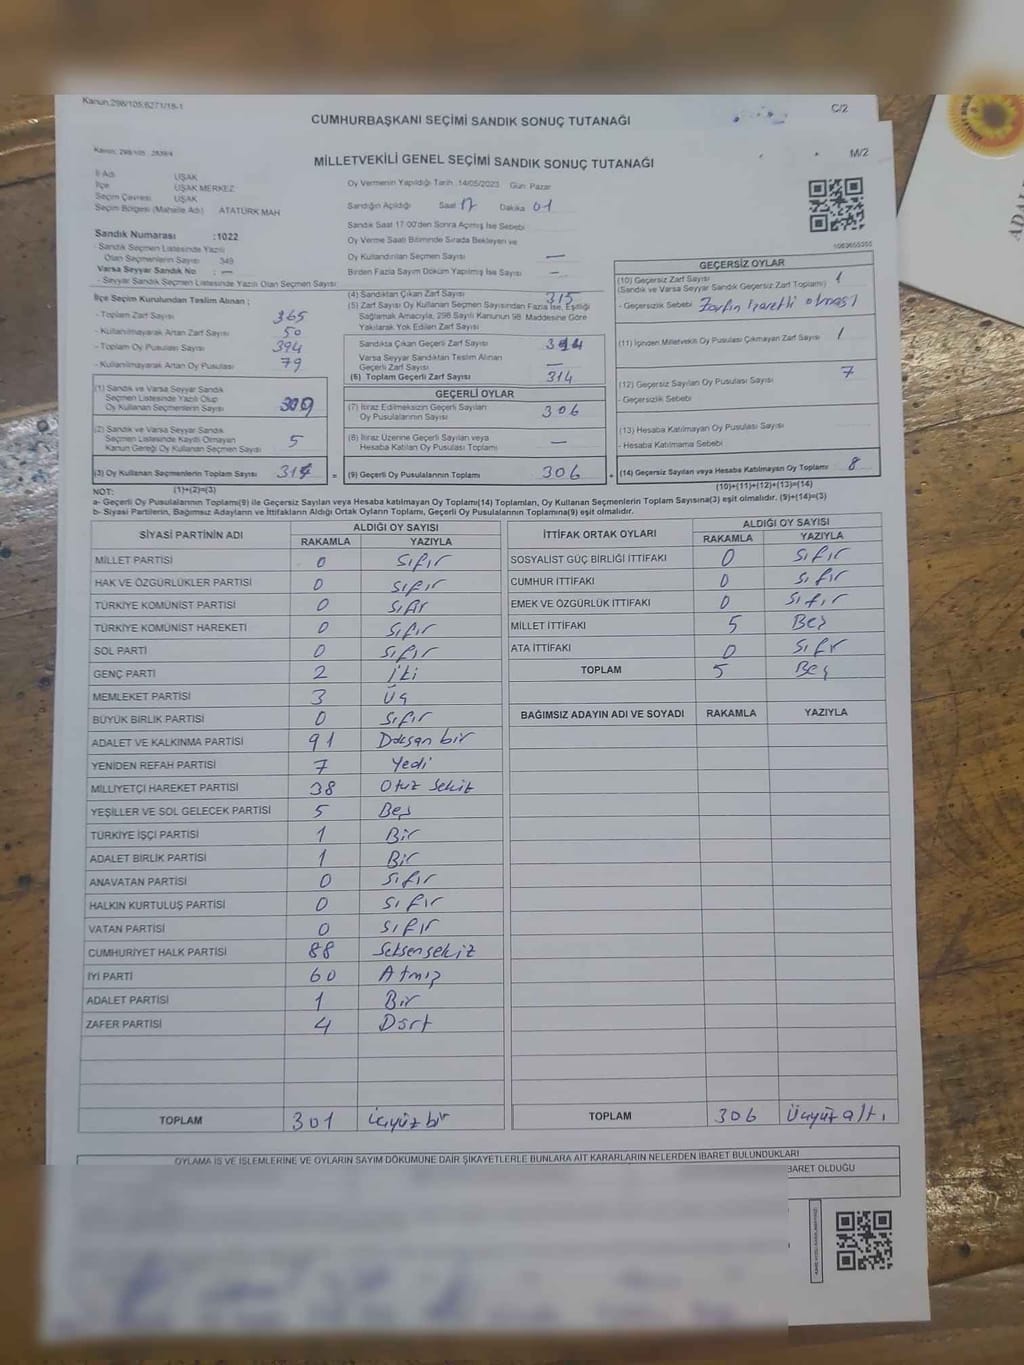 Kanun:298/105;6271/18-1
C/2
CUMHURBAŞKANI SEÇİMİ SANDIK SONUÇ TUTANAĞI
M/2
MİLLETVEKİLİ GENEL SEÇİMİ SANDIK SONUÇ TUTANAĞI
İl Adı UŞAK
İlçe UŞAK MERKEZ
Seçim Çevresi UŞAK
Seçim Bölgesi (Mahalle Adı) ATATÜRK MAH
Sandık Numarası :1022
- Sandık Seçmen Listesinde Yazılı
Olan Seçmenlerin Sayısı 349
Varsa Seyyar Sandık No : —
- Seyyar Sandık Seçmen Listesinde Yazılı Olan Seçmen Sayısı
Oy Vermenin Yapıldığı Tarih :14/05/2023 Gün: Pazar
Sandığın Açıldığı Saat 17 Dakika 01
Sandık Saat 17:00'den Sonra Açılmış İse Sebebi
Oy Verme Saati Bitiminde Sırada Bekleyen ve
Oy Kullandırılan Seçmen Sayısı —
Birden Fazla Sayım Döküm Yapılmış İse Sayısı —
İlçe Seçim Kurulundan Teslim Alınan ;
- Toplam Zarf Sayısı 365
- Kullanılmayarak Artan Zarf Sayısı 50
- Toplam Oy Pusulası Sayısı 394
- Kullanılmayarak Artan Oy Pusulası 79
(1) Sandık ve Varsa Seyyar Sandık
Seçmen Listesinde Yazılı Olup
Oy Kullanan Seçmenlerin Sayısı
(2) Sandık ve Varsa Seyyar Sandık
Seçmen Listesinde Kayıtlı Olmayan
Kanun Gereği Oy Kullanan Seçmen Sayısı 5
(3) Oy Kullanan Seçmenlerin Toplam Sayısı 314
(4) Sandıktan Çıkan Zarf Sayısı 315
(5) Zarf Sayısı Oy Kullanan Seçmen Sayısından Fazla İse, Eşitliği
Sağlamak Amacıyla, 298 Sayılı Kanunun 98. Maddesine Göre
Yakılarak Yok Edilen Zarf Sayısı
Sandıkta Çıkan Geçerli Zarf Sayısı 314
Varsa Seyyar Sandıktan Teslim Alınan
Geçerli Zarf Sayısı —
(6) Toplam Geçerli Zarf Sayısı 314
GEÇERLİ OYLAR
(7) İtiraz Edilmeksizin Geçerli Sayılan
Oy Pusulalarının Sayısı 306
(8) İtiraz Üzerine Geçerli Sayılan veya
Hesaba Katılan Oy Pusulası Toplamı —
= (9) Geçerli Oy Pusulalarının Toplamı 306
1063655355
GEÇERSİZ OYLAR
(10) Geçersiz Zarf Sayısı 1
(Sandık ve Varsa Seyyar Sandık Geçersiz Zarf Toplamı)
- Geçersizlik Sebebi Zarfın işaretli olması
(11) İçinden Milletvekili Oy Pusulası Çıkmayan Zarf Sayısı 1
(12) Geçersiz Sayılan Oy Pusulası Sayısı 7
- Geçersizlik Sebebi
(13) Hesaba Katılmayan Oy Pusulası Sayısı
- Hesaba Katılmama Sebebi
+ (14) Geçersiz Sayılan veya Hesaba Katılmayan Oy Toplamı 8
NOT: (1)+(2)=(3) (10)+(11)+(12)+(13)=(14)
a- Geçerli Oy Pusulalarının Toplamı(9) ile Geçersiz Sayılan veya Hesaba katılmayan Oy Toplamı(14) Toplamları, Oy Kullanan Seçmenlerin Toplam Sayısına(3) eşit olmalıdır. (9)+(14)=(3)
b- Siyasi Partilerin, Bağımsız Adayların ve İttifakların Aldığı Ortak Oyların Toplamı, Geçerli Oy Pusulalarının Toplamına(9) eşit olmalıdır.
SİYASİ PARTİNİN ADI ALDIĞI OY SAYISI
RAKAMLA YAZIYLA
MİLLET PARTİSİ 0 Sıfır
HAK VE ÖZGÜRLÜKLER PARTİSİ 0 Sıfır
TÜRKİYE KOMÜNİST PARTİSİ 0 Sıfır
TÜRKİYE KOMÜNİST HAREKETİ 0 Sıfır
SOL PARTİ 0 Sıfır
GENÇ PARTİ 2 İki
MEMLEKET PARTİSİ 3 Üç
BÜYÜK BİRLİK PARTİSİ 0 Sıfır
ADALET VE KALKINMA PARTİSİ 91 Doksan bir
YENİDEN REFAH PARTİSİ 7 Yedi
MİLLİYETÇİ HAREKET PARTİSİ 38 Otuz Sekiz
YEŞİLLER VE SOL GELECEK PARTİSİ 5 Beş
TÜRKİYE İŞÇİ PARTİSİ 1 Bir
ADALET BİRLİK PARTİSİ 1 Bir
ANAVATAN PARTİSİ 0 Sıfır
HALKIN KURTULUŞ PARTİSİ 0 Sıfır
VATAN PARTİSİ 0 Sıfır
CUMHURİYET HALK PARTİSİ 88 Seksensekiz
İYİ PARTİ 60 Atmış
ADALET PARTİSİ 1 Bir
ZAFER PARTİSİ 4 Dört
TOPLAM 301 Üçyüz bir
İTTİFAK ORTAK OYLARI ALDIĞI OY SAYISI
RAKAMLA YAZIYLA
SOSYALİST GÜÇ BİRLİĞİ İTTİFAKI 0 Sıfır
CUMHUR İTTİFAKI 0 Sıfır
EMEK VE ÖZGÜRLÜK İTTİFAKI 0 Sıfır
MİLLET İTTİFAKI 5 Beş
ATA İTTİFAKI 0 Sıfr
TOPLAM 5 Beş
BAĞIMSIZ ADAYIN ADI VE SOYADI RAKAMLA YAZIYLA
TOPLAM 306 Üçyüz altı
OYLAMA İŞ VE İŞLEMLERİNE VE OYLARIN SAYIM DÖKÜMÜNE DAİR ŞİKAYETLERLE BUNLARA AİT KARARLARIN NELERDEN İBARET BULUNDUKLARI
BARET OLDUĞU